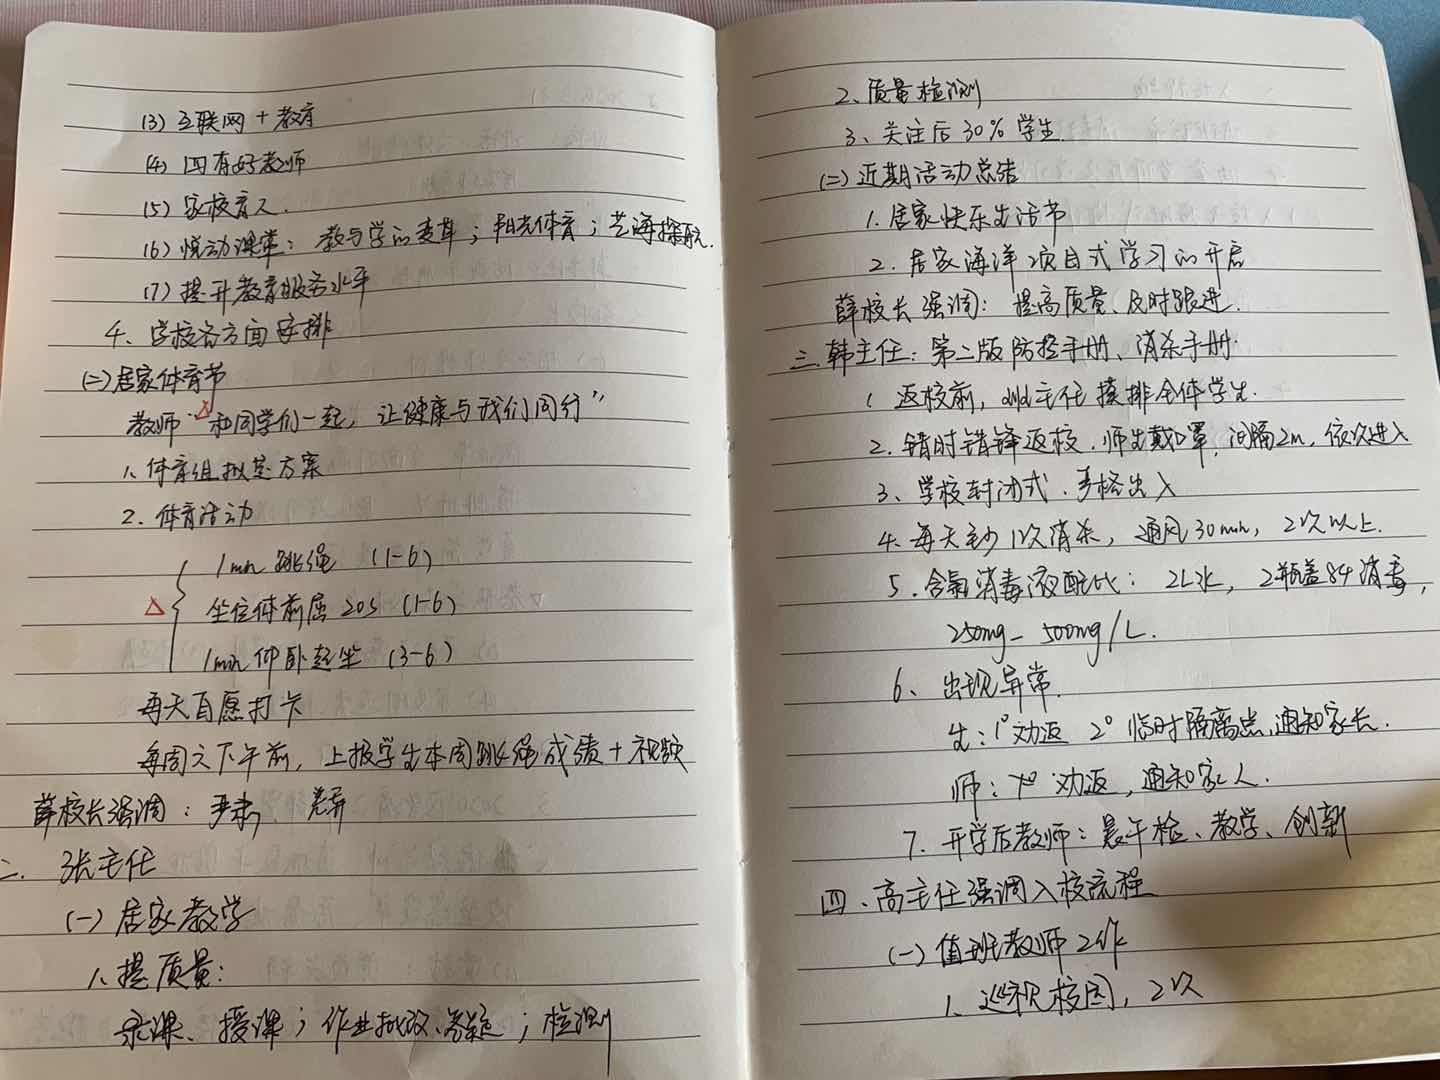 (3) 互联网 + 教育
(4) 四有好教师
(5) 家校育人.
(6) 悦动课堂: 教与学的变革; 阳光体育; 艺海探航.
(7) 提升教育服务水平
4、学校各方面安排
(二) 居家体育节
教师 “和同学们一起, 让健康与我们同行”
1. 体育组拟定方案
2. 体育活动
1min 跳绳 (1-6)
坐位体前屈 20s (1-6)
1min 仰卧起坐 (3-6)
每天自愿打卡
每周六下午前, 上报学生本周跳绳成绩 + 视频
薛校长强调:
二. 张主任
(一) 居家教学
1. 提质量:
录课、授课; 作业批改、答疑; 检测
2、质量检测
3、关注后30%学生.
(二) 近期活动总结
1. 居家快乐生活节
2. 居家海洋项目式学习的开启
薛校长强调: 提高质量、及时跟进.
三. 韩主任: 第二版防控手册、消杀手册.
1. 返校前, 班主任摸排全体学生.
2. 错时错锋返校. 师生戴口罩, 间隔2m, 依次进入
3、学校封闭式. 严格出入
4. 每天至少1次消杀, 通风30min, 2次以上.
5. 含氯消毒液配比: 2L水, 2瓶盖84消毒,
250mg - 500mg/L.
6、出现异常.
生: 1° 劝返 2° 临时隔离点, 通知家长.
师: 1° 劝返, 通知家人.
7. 开学后教师: 晨午检、教学、创新
四、高主任强调入校流程
(一) 值班教师工作
1. 巡视校园, 2次